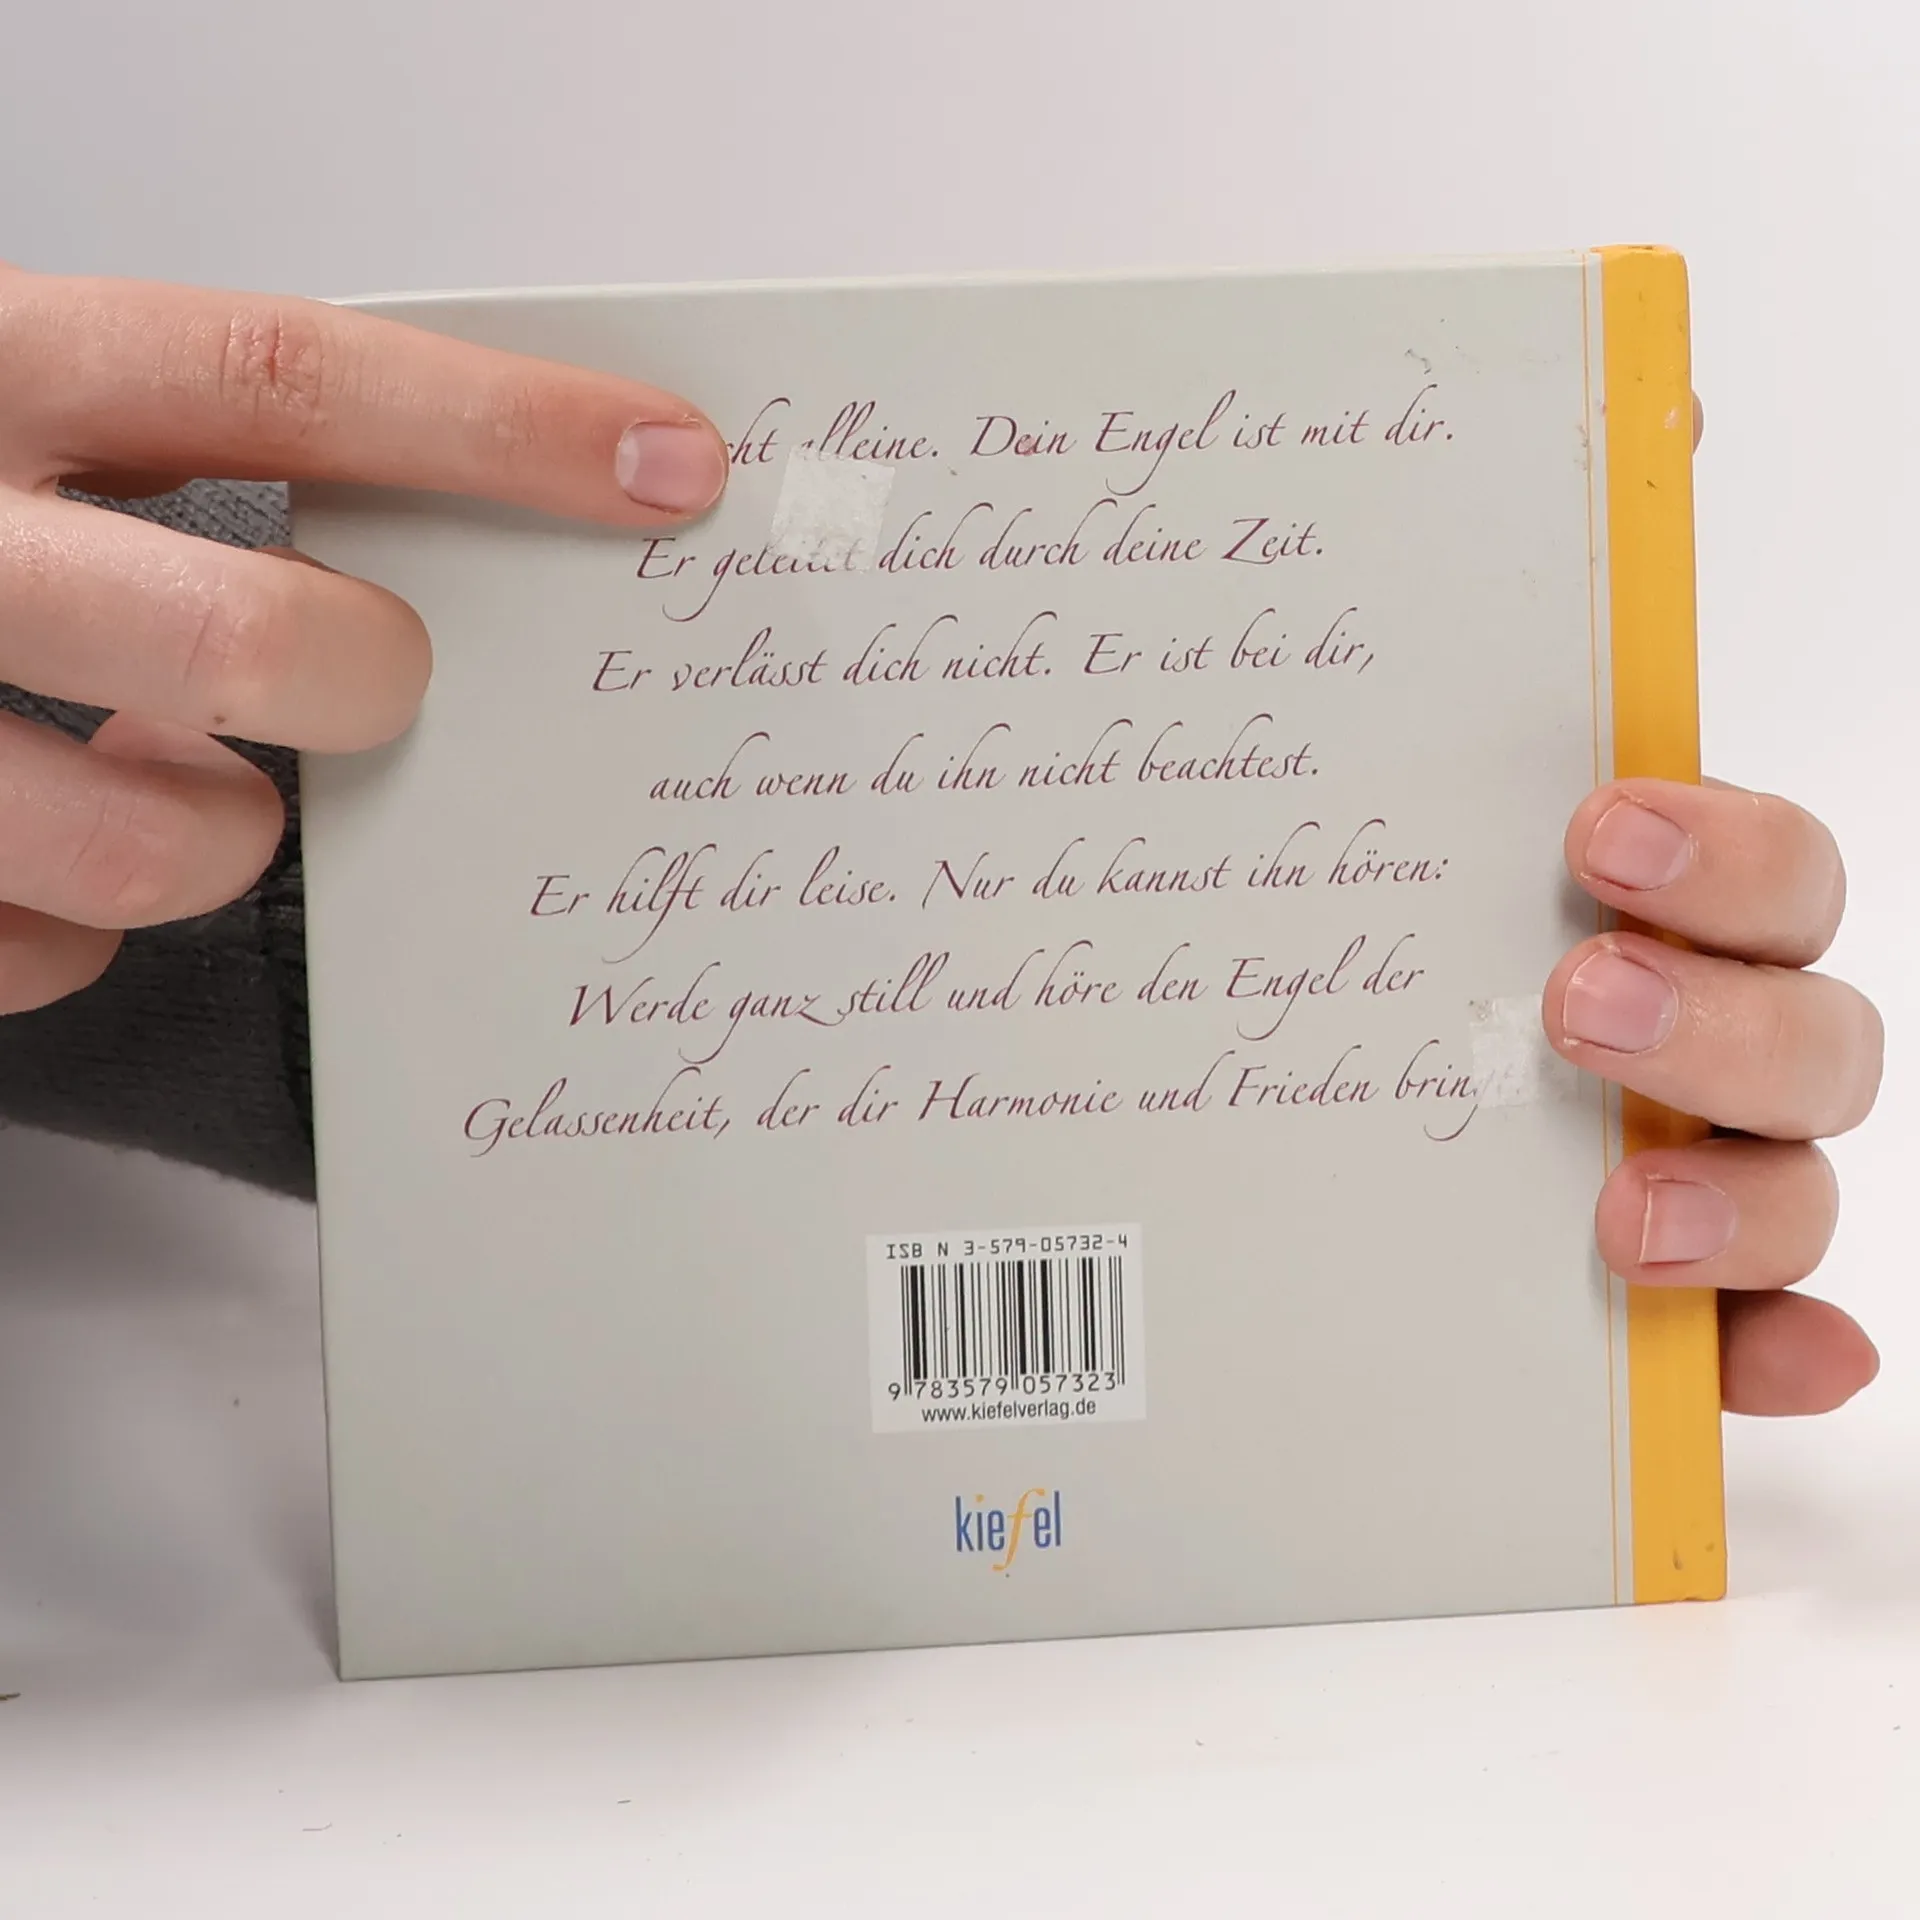 alleine. Dein Engel ist mit dir.
Er geleitet dich durch deine Zeit.
Er verlässt dich nicht. Er ist bei dir,
auch wenn du ihn nicht beachtest.
Er hilft dir leise. Nur du kannst ihn hören:
Werde ganz still und höre den Engel der
Gelassenheit, der dir Harmonie und Frieden bringt.
ISBN 3-579-05732-4
9 783579 057323
www.kiefelverlag.de
kiefel